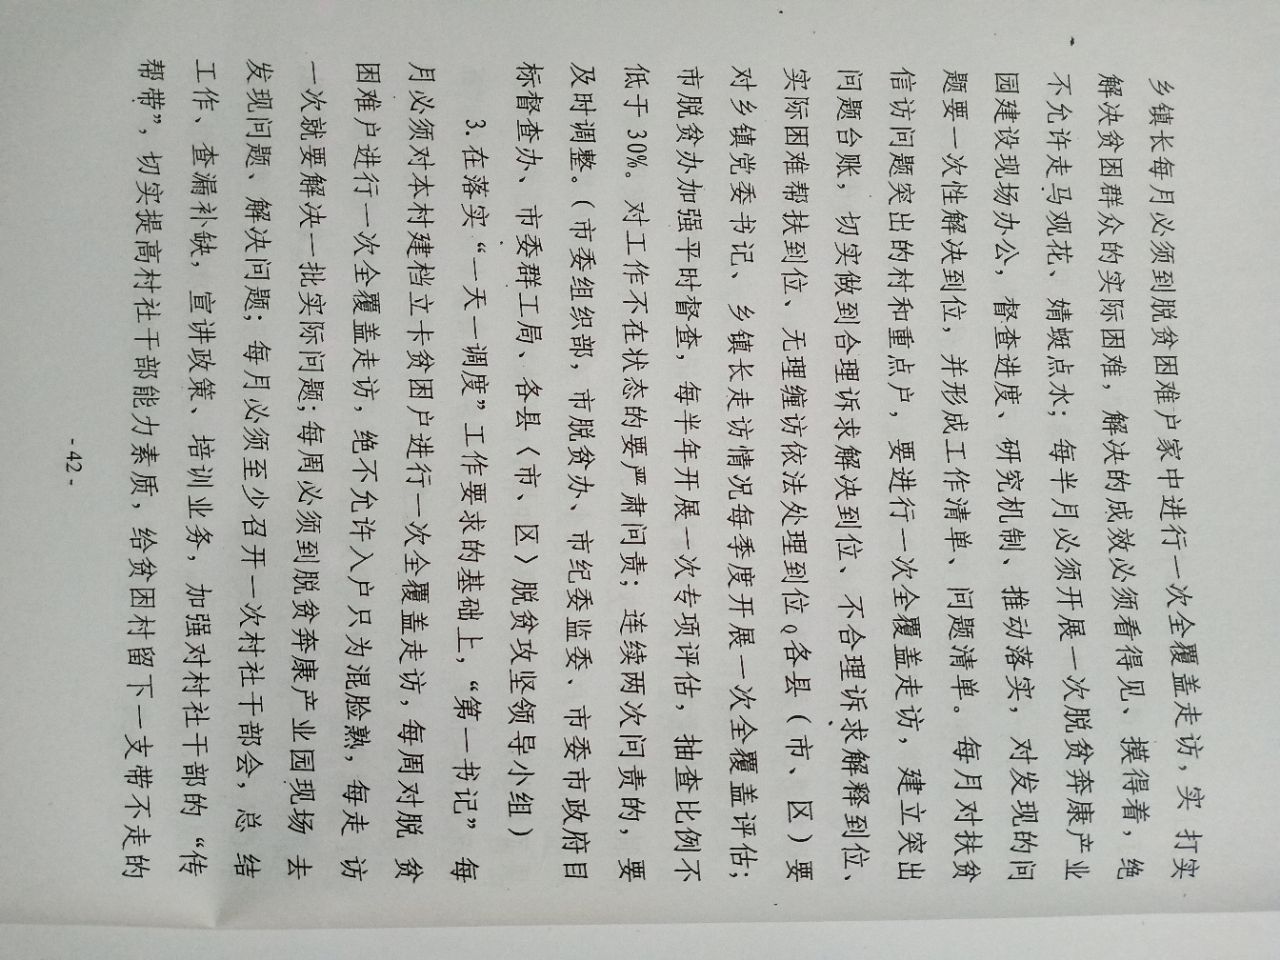 乡镇长每月必须到脱贫困难户家中进行一次全覆盖走访，实 打实
解决贫困群众的实际困难，解决的成效必须看得见、摸得着，绝
不允许走马观花、蜻蜓点水；每半月必须开展一次脱贫奔康产业
园建设现场办公，督查进度、研究机制、推动落实，对发现的问
题要一次性解决到位，并形成工作清单、问题清单。每月对扶贫
信访问题突出的村和重点户，要进行一次全覆盖走访，建立突出
问题台账，切实做到合理诉求解决到位、不合理诉求解释到位、
实际困难帮扶到位、无理缠访依法处理到位。各县（市、区）要
对乡镇党委书记、乡镇长走访情况每季度开展一次全覆盖评估；
市脱贫办加强平时督查，每半年开展一次专项评估，抽查比例不
低于 30%。对工作不在状态的要严肃问责；连续两次问责的，要
及时调整。（市委组织部，市脱贫办、市纪委监委、市委市政府目
标督查办、市委群工局、各县〈市、区〉脱贫攻坚领导小组）
3. 在落实“一天一调度”工作要求的基础上，“第一书记”每
月必须对本村建档立卡贫困户进行一次全覆盖走访，每周对脱 贫
困难户进行一次全覆盖走访，绝不允许入户只为混脸熟，每走 访
一次就要解决一批实际问题；每周必须到脱贫奔康产业园现场 去
发现问题、解决问题；每月必须至少召开一次村社干部会，总 结
工作、查漏补缺，宣讲政策、培训业务，加强对村社干部的“传
帮带”，切实提高村社干部能力素质，给贫困村留下一支带不走的
- 42 -